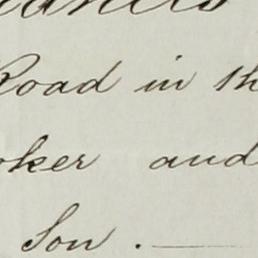 Road in th
oker and
Son.